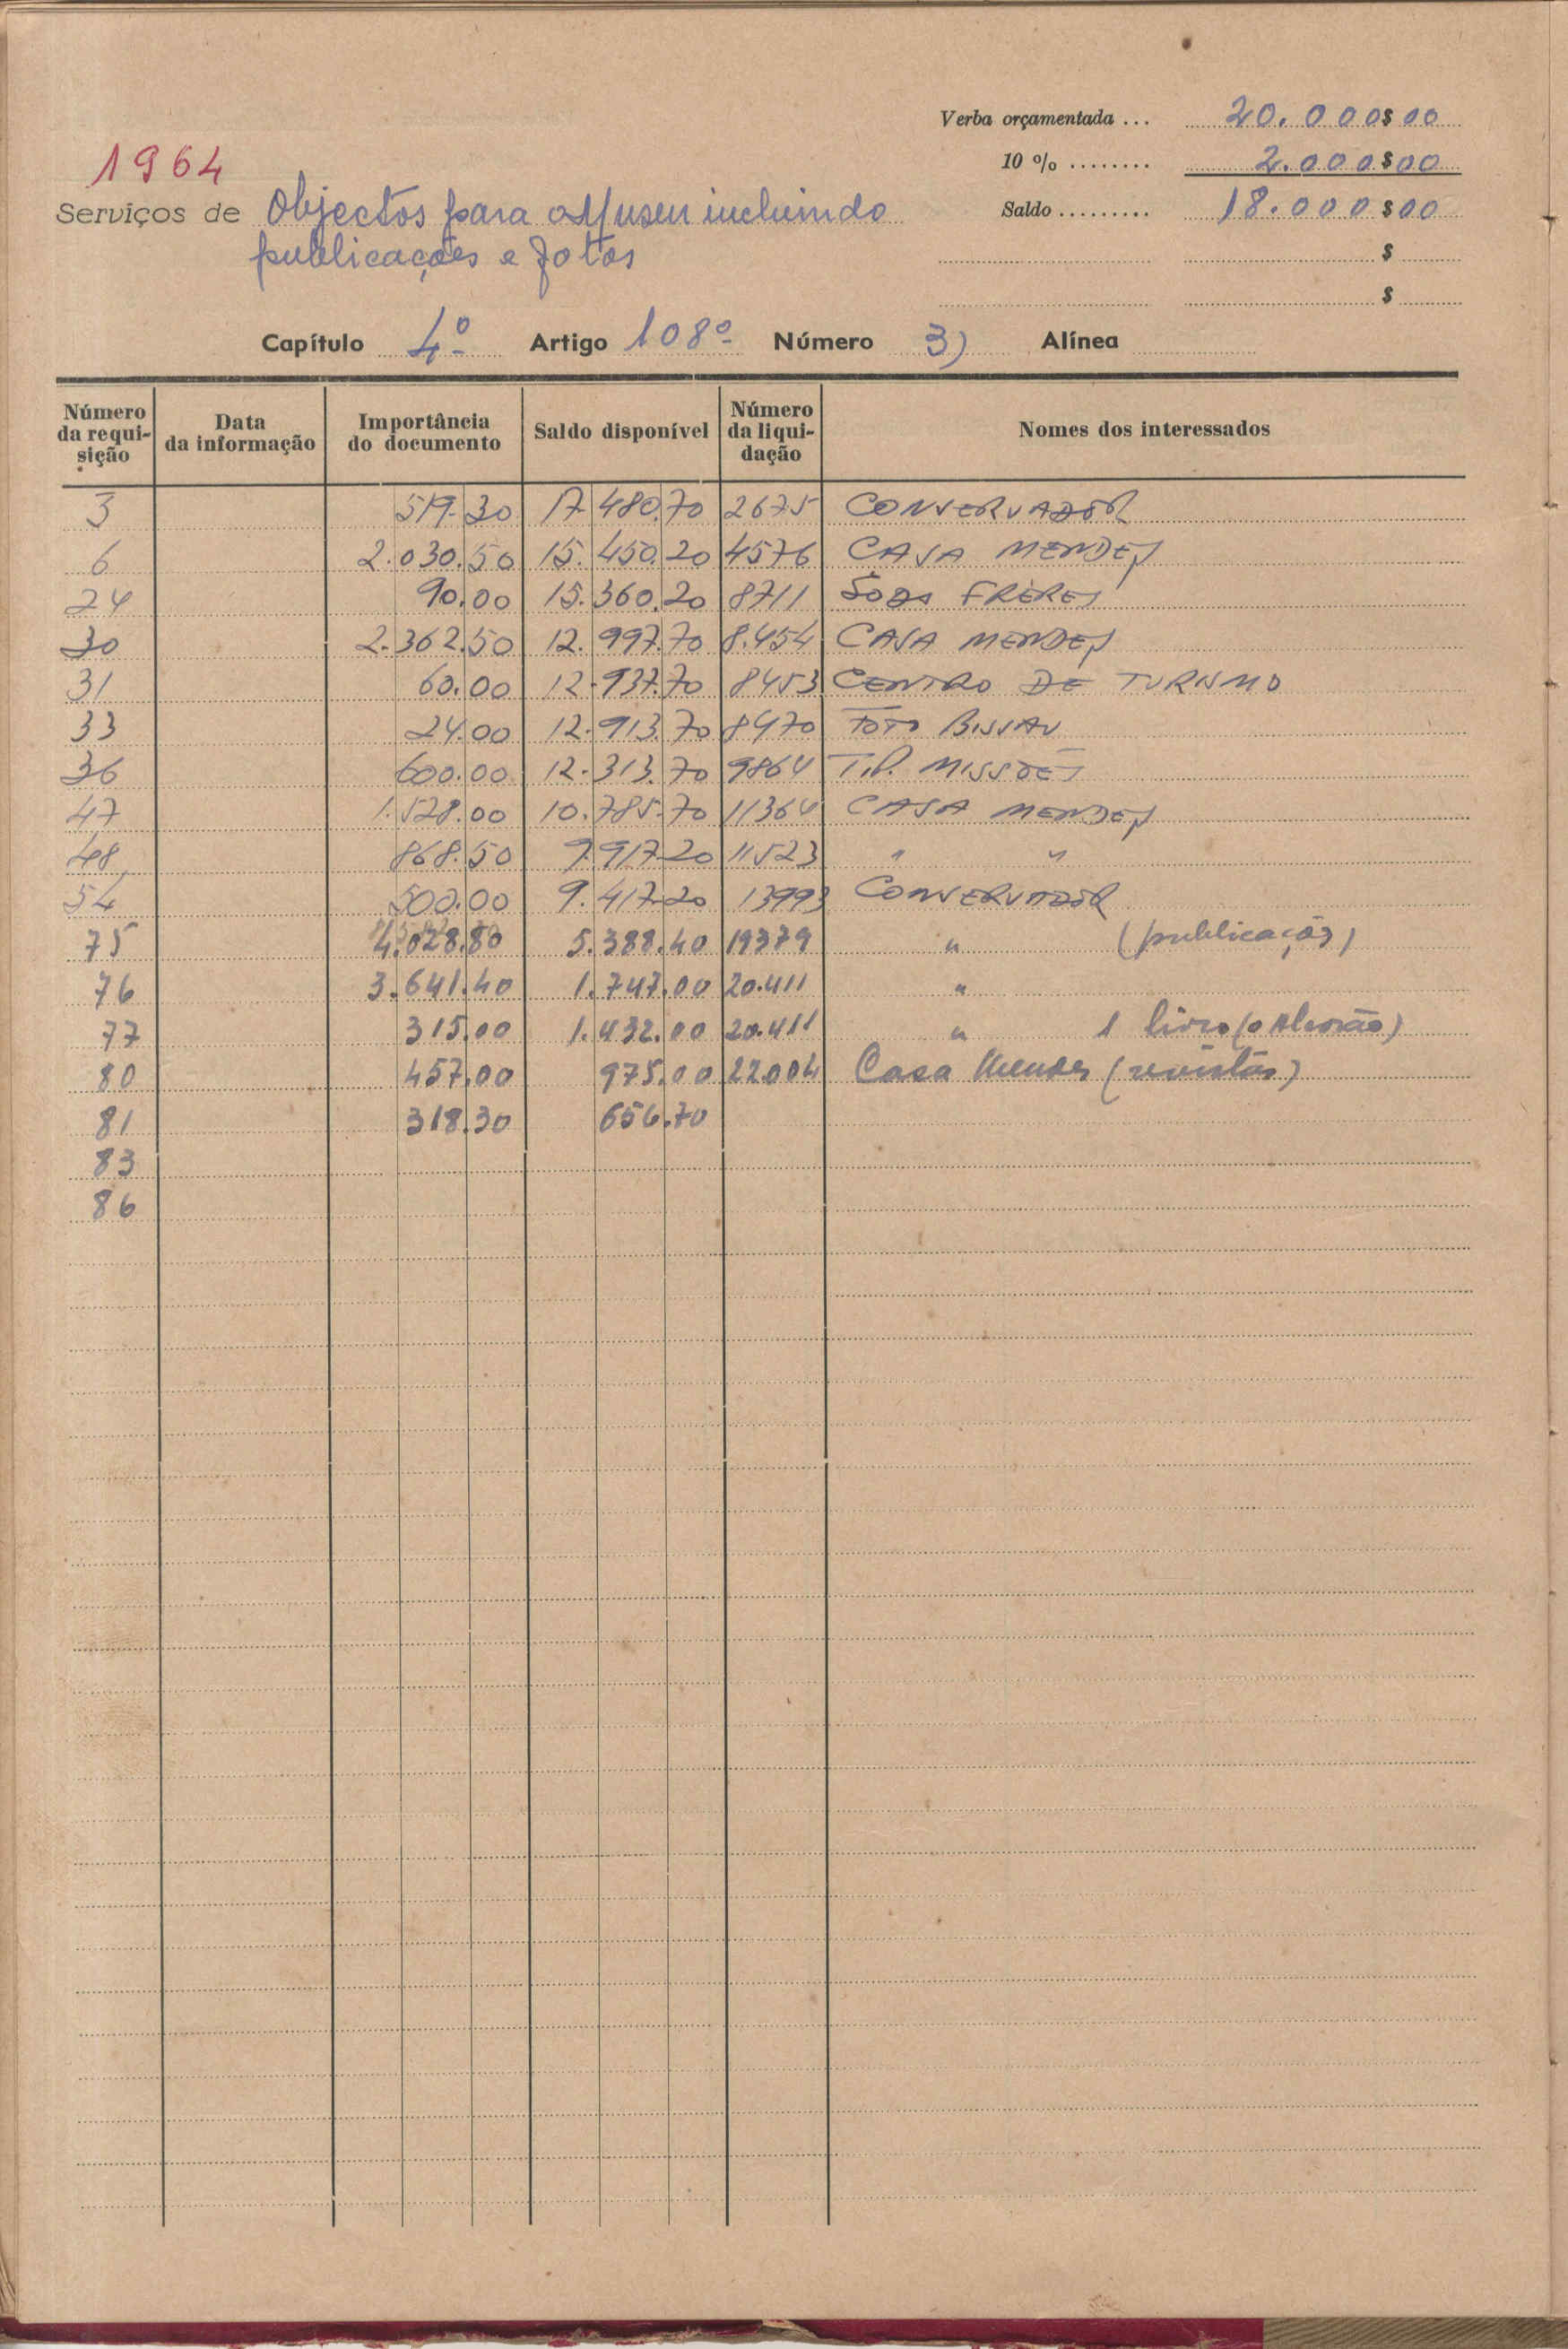 Verba orçamentada ... 20.000$00
1964
10 % ........ 2.000$00
Serviços de Objectos para o Museu incluindo
Saldo ......... 18.000$00
publicações e fotos
$
$
Capítulo 4º Artigo 108º Número 3) Alínea
Número da requi-sição Data da informação Importância do documento Saldo disponível Número da liqui-dação Nomes dos interessados
3 519.30 17.480.70 2675 CONSERVADOR
6 2.030.50 15.450.20 4576 CASA MENDES
24 90.00 15.360.20 8711 FRÈRES
30 2.362.50 12.997.70 8.454 CASA MENDES
31 60.00 12.937.70 8453 CENTRO DE TURISMO
33 24.00 12.913.70 8470 FOTO BISSAU
36 600.00 12.313.70 9864 TIP. MISSÕES
47 1.528.00 10.785.70 11364 CASA MENDES
48 868.50 9.917.20 11523 " "
54 500.00 9.417.20 13993 CONSERVADOR
75 4.028.80 5.388.40 19379 " (publicação)
76 3.641.40 1.747.00 20.411 "
77 315.00 1.432.00 20.411 " 1 livro (o Alcorão)
80 457.00 975.00 22004 Casa Mendes (revistas)
81 318.30 656.70
83
86